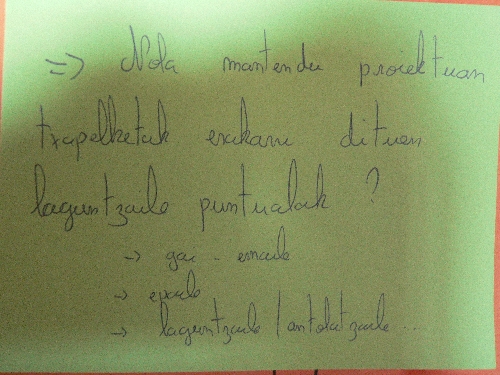 => Nola mantendu proiektuan
txapelketak erakarri dituen
laguntzaile puntualak ?
→ gai-emaile
→ epaile
→ laguntzaile / antolatzaile ...